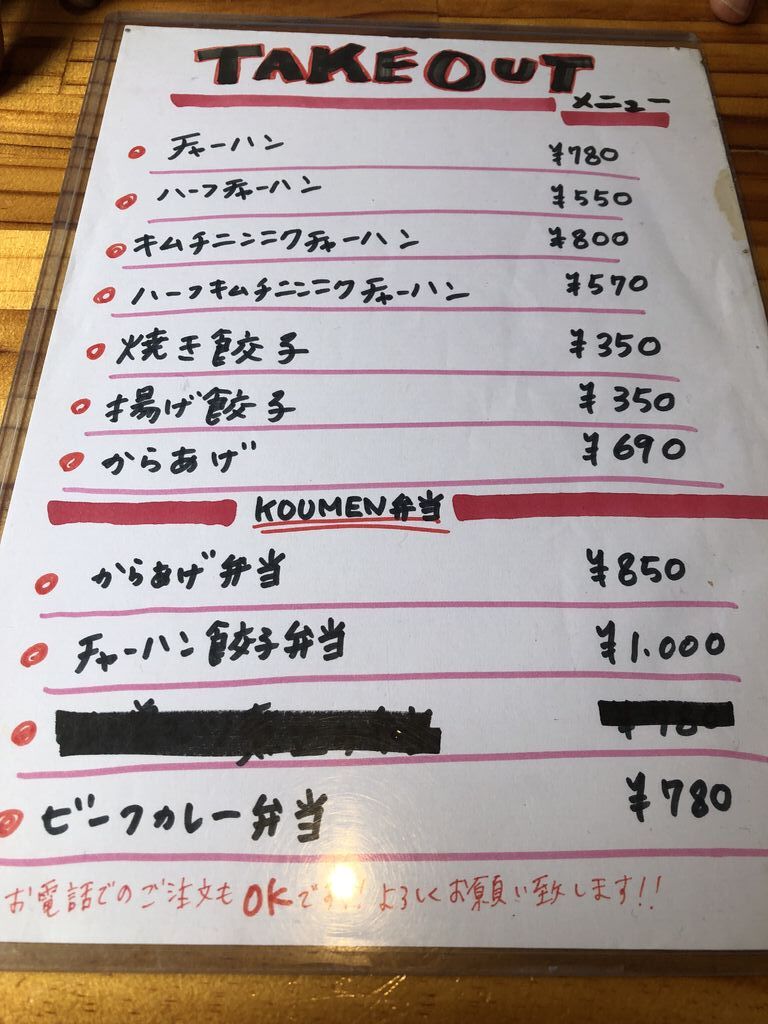 TAKEOUT
メニュー
チャーハン ¥780
ハーフチャーハン ¥550
キムチニンニクチャーハン ¥800
ハーフキムチニンニクチャーハン ¥570
焼き餃子 ¥350
揚げ餃子 ¥350
からあげ ¥690
KOUMEN弁当
からあげ弁当 ¥850
チャーハン餃子弁当 ¥1.000
ビーフカレー弁当 ¥780
お電話でのご注文もOKです!! よろしくお願い致します!!